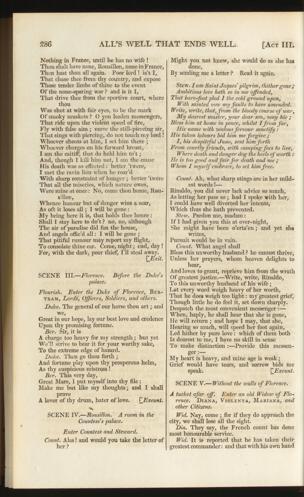 286 ALL'S WELL THAT ENDS WELL. [ACT III.
Nothing in France, until he has no wife!
Thou shalt have none, Rousillon, none in France,
Then hast thou all again. Poor lord! is't I,
That chase thee from thy country, and expose
Those tender limbs of thine to the event
Of the none-sparing war? and is it I,
That drive thee from the sportive court, where
thou
Was shot at with fair eyes, to be the mark
Of smoky muskets? O you leaden messengers,
That ride upon the violent speed of fire,
Fly with false aim; move the still-piercing air,
That sings with piercing, do not touch my lord!
Whoever shoots at him, I set him there;
Whoever charges on his forward breast,
I am the caitiff, that do hold him to't;
And, though I kill him not, I am the cause
His death was so effected: better 'twere,
I met the ravin lion when he roar'd
With sharp constraint of hunger; better 'twere
That all the miseries, which nature owes,
Were mine at once: No, come thou home, Rousillon,
Whence honour but of danger wins a scar,
As oft it loses all; I will be gone:
My being here it is, that holds thee hence:
Shall I stay here to do't? no, no, although
The air of paradise did fan the house,
And angels offic'd all: I will be gone;
That pitiful rumour may report my flight,
To consolate thine ear. Come, night; end, day!
For, with the dark, poor thief, I'll steal away.
[Exit.
SCENE III.—Florence. Before the Duke's
palace.
Flourish. Enter the Duke of Florence, BERTRAM,
Lords, Officers, Soldiers, and others.
Duke. The general of our horse thou art; and
we,
Great in our hope, lay our best love and credence
Upon thy promising fortune.
Ber. Sir, it is
A charge too heavy for my strength; but yet
We'll strive to bear it for your worthy sake,
To the extreme edge of hazard.
Duke. Then go thou forth;
And fortune play upon thy prosperous helm,
As thy auspicious mistress!
Ber. This very day,
Great Mars, I put myself into thy file:
Make me but like my thoughts; and I shall
prove
A lover of thy drum, hater of love. [Exeunt.
SCENE IV.—Rousillon. A room in the
Countess's palace.
Enter Countess and Steward.
Count. Alas! and would you take the letter of
her?
Might you not know, she would do as she has
done,
By sending me a letter? Read it again.
Stew. I am Saint Jaques' pilgrim, thither gone;
Ambitious love hath so in me offended,
That bare-foot plod I the cold ground upon,
With sainted vow my faults to have amended.
Write, write, that, from the bloody course of war,
My dearest master, your dear son, may hie;
Bless him at home in peace, whilst I from far,
His name with zealous fervour sanctify:
His taken labours bid him me forgive;
I, his despiteful Juno, sent him forth
From courtly friends, with camping foes to live,
Where death and danger dog the heels of worth:
He is too good and fair for death and me;
Whom I myself embrace, to set him free.
Count. Ah, what sharp stings are in her mildest
words!—
Rinaldo, you did never lack advice so much,
As letting her pass so; had I spoke with her,
I could have well diverted her intents,
Which thus she hath prevented.
Stew. Pardon me, madam:
If I had given you this at over-night,
She might have been o'erta'en; and yet she
writes,
Pursuit would be in vain.
Count. What angel shall
Bless this unworthy husband? he cannot thrive,
Unless her prayers, whom heaven delights to
hear,
And loves to grant, reprieve him from the wrath
Of greatest justice.—Write, write, Rinaldo,
To this unworthy husband of his wife;
Let every word weigh heavy of her worth,
That he does weigh too light: my greatest grief,
Though little he do feel it, set down sharply.
Despatch the most convenient messenger:—
When, haply, he shall hear that she is gone,
He will return; and hope I may, that she,
Hearing so much, will speed her foot again,
Led hither by pure love: which of them both
Is dearest to me, I have no skill in sense
To make distinction:—Provide this messenger:—
My heart is heavy, and mine age is weak;
Grief would have tears, and sorrow bids me
speak. [Exeunt.
SCENE V.—Without the walls of Florence.
A tucket afar off. Enter an old Widow of Florence,
DIANA, VIOLENTA, MARIANA, and
other Citizens.
Wid. Nay, come; for if they do approach the
city, we shall lose all the sight.
Dia. They say, the French count has done
most honourable service.
Wid. It is reported that he has taken their
greatest commander: and that with his own hand